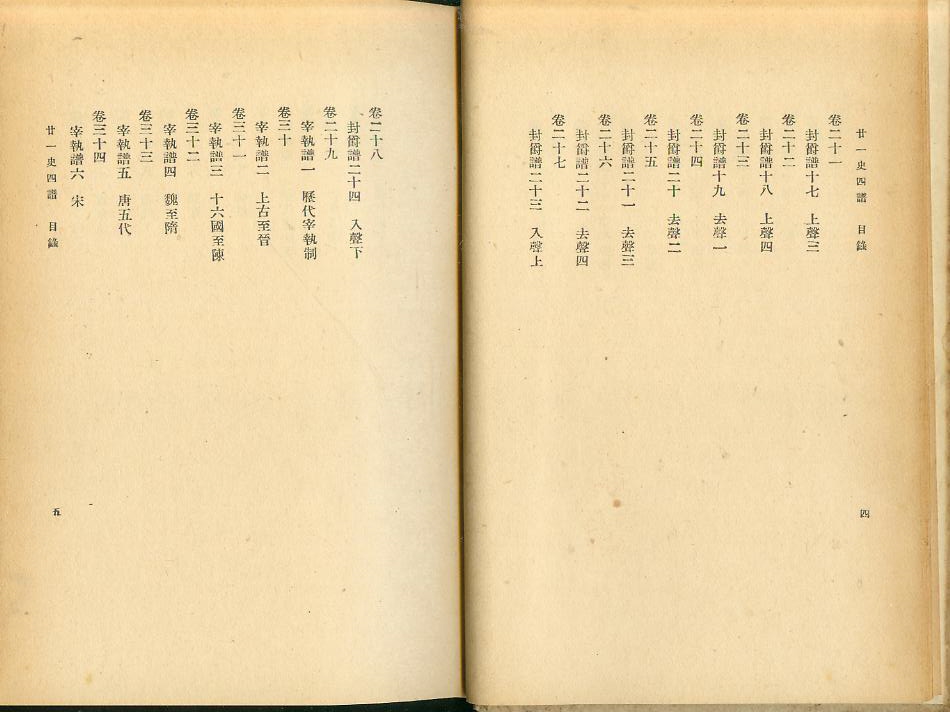 廿一史四譜 目錄
四
卷二十一
封爵譜十七 上聲三
卷二十二
封爵譜十八 上聲四
卷二十三
封爵譜十九 去聲一
卷二十四
封爵譜二十 去聲二
卷二十五
封爵譜二十一 去聲三
卷二十六
封爵譜二十二 去聲四
卷二十七
封爵譜二十三 入聲上
卷二十八
封爵譜二十四 入聲下
卷二十九
宰執譜一 歷代宰執制
卷三十
宰執譜二 上古至晉
卷三十一
宰執譜三 十六國至陳
卷三十二
宰執譜四 魏至隋
卷三十三
宰執譜五 唐五代
卷三十四
宰執譜六 宋
廿一史四譜 目錄
五